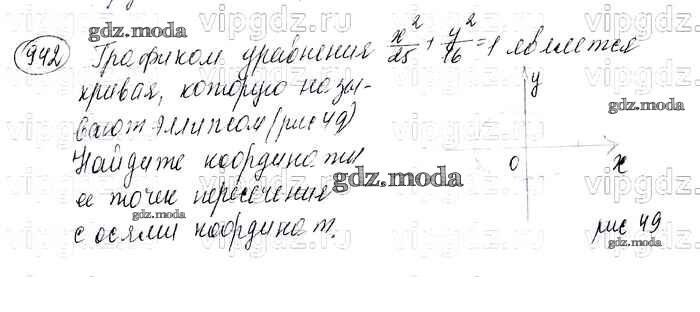 942 Графиком уравнения x²/25 + y²/16 = 1 является
кривая, которую назы-
вают эллипсом (рис 49)
Найдите координаты
ее точек пересечения
с осями координат.
y
0 x
рис 49
gdz.moda
gdz.moda
gdz.moda
gdz.moda
gdz.moda
vipgdz.ru
vipgdz.ru
vipgdz.ru
vipgdz.ru